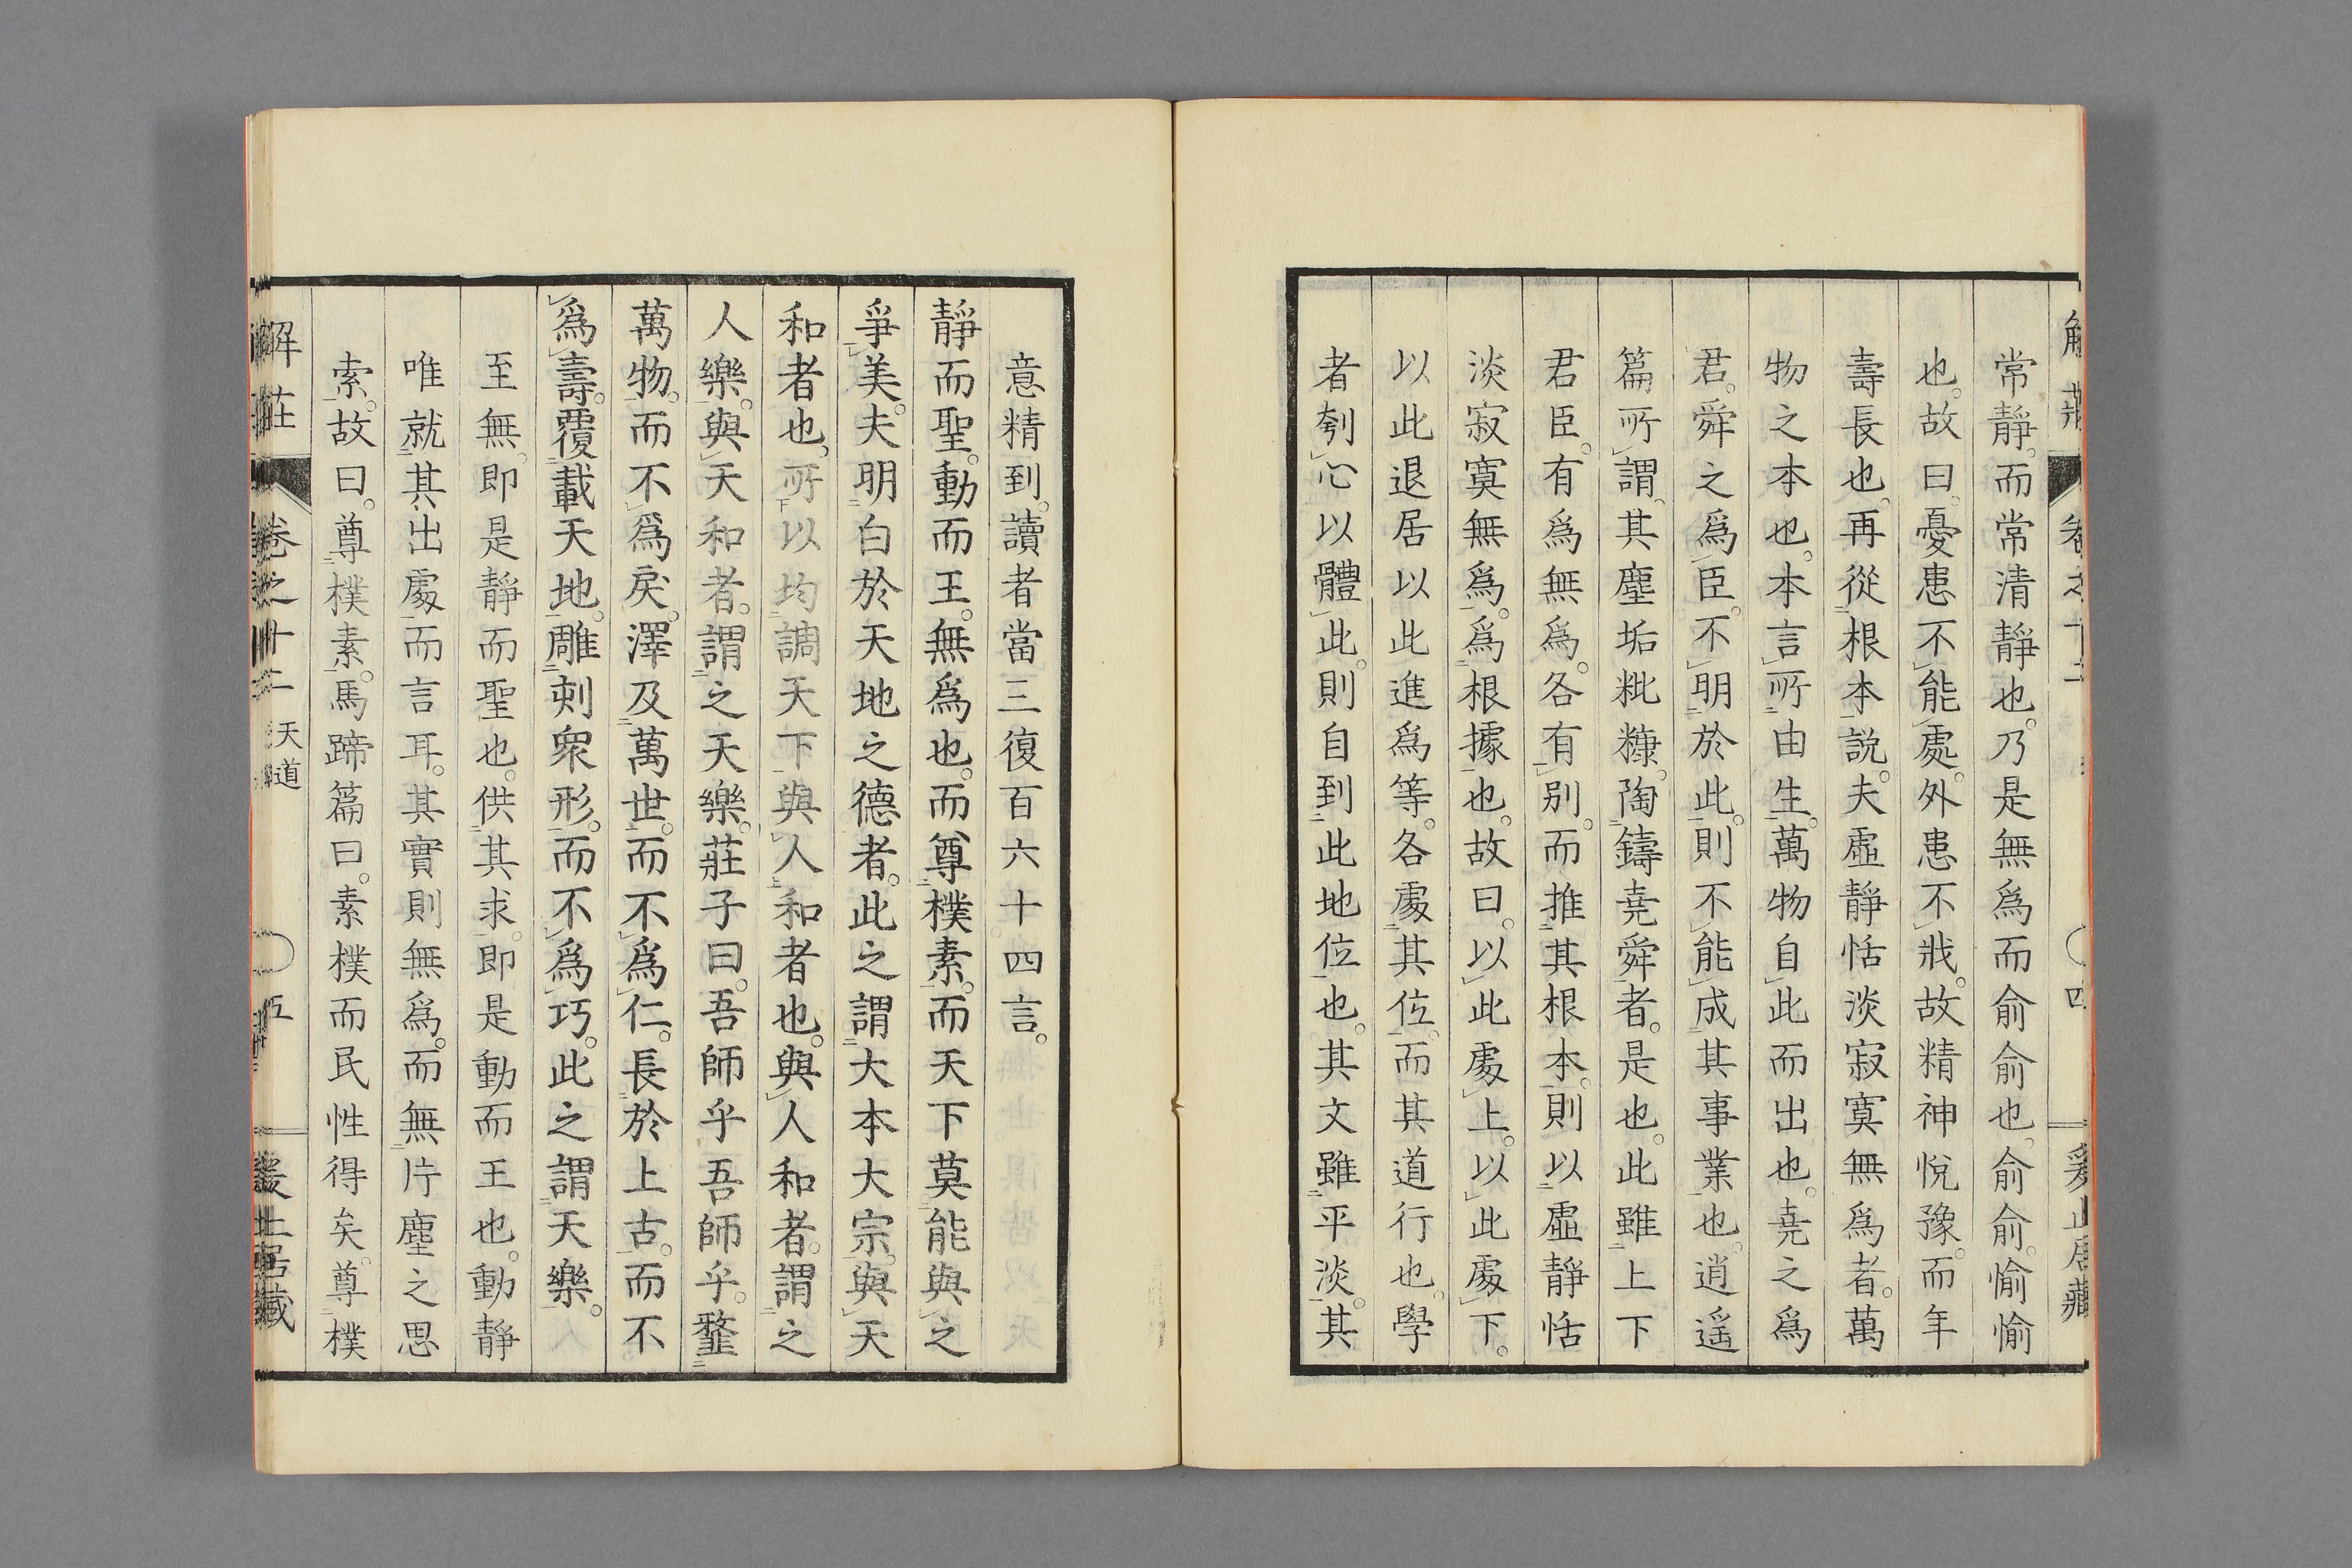 常靜而常清靜也。乃是無爲而俞俞也。俞俞。愉愉
也。故曰。憂患不能處。外患不戕。故精神悅豫。而年
壽長也。再從根本說。夫虛靜恬淡寂寞無爲者。萬
物之本也。本言所由生。萬物自此而出也。堯之爲
君。舜之爲臣。不明於此。則不能成其事業也。逍遥
篇所謂。其塵垢粃糠。陶鑄堯舜者。是也。此雖上下
君臣。有爲無爲。各有別。而推其根本。則以虛靜恬
淡寂寞無爲。爲根據也。故曰。以此處上。以此處下。
以此退居以此進爲等。各處其位。而其道行也。學
者刳心以體此。則自到此地位也。其文雖平淡。其
意精到。讀者當三復百六十四言。
靜而聖。動而王。無爲也。而尊樸素。而天下莫能與之
爭美。夫明白於天地之德者。此之謂大本大宗。與天
和者也。所以均調天下。與人和者也。與人和者。謂之
人樂。與天和者。謂之天樂。莊子曰。吾師乎吾師乎。韲
萬物。而不爲戾。澤及萬世。而不爲仁。長於上古。而不
爲壽。覆載天地。雕刻衆形。而不爲巧。此之謂天樂。
至無。即是靜而聖也。供其求。即是動而王也。動靜
唯就其出處而言耳。其實則無爲。而無片塵之思
索。故曰。尊樸素。馬蹄篇曰。素樸而民性得矣。尊樸
解莊 卷之十二 天道 五